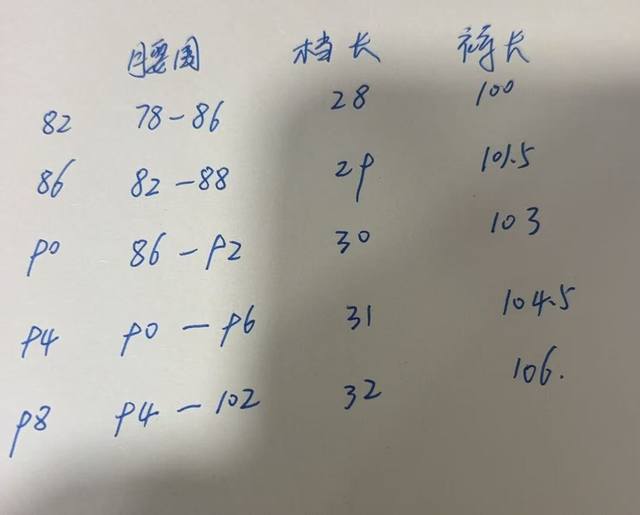 腰围 档长 裤长
82 78-86 28 100
86 82-88 29 101.5
90 86-92 30 103
94 90-96 31 104.5
98 94-102 32 106.